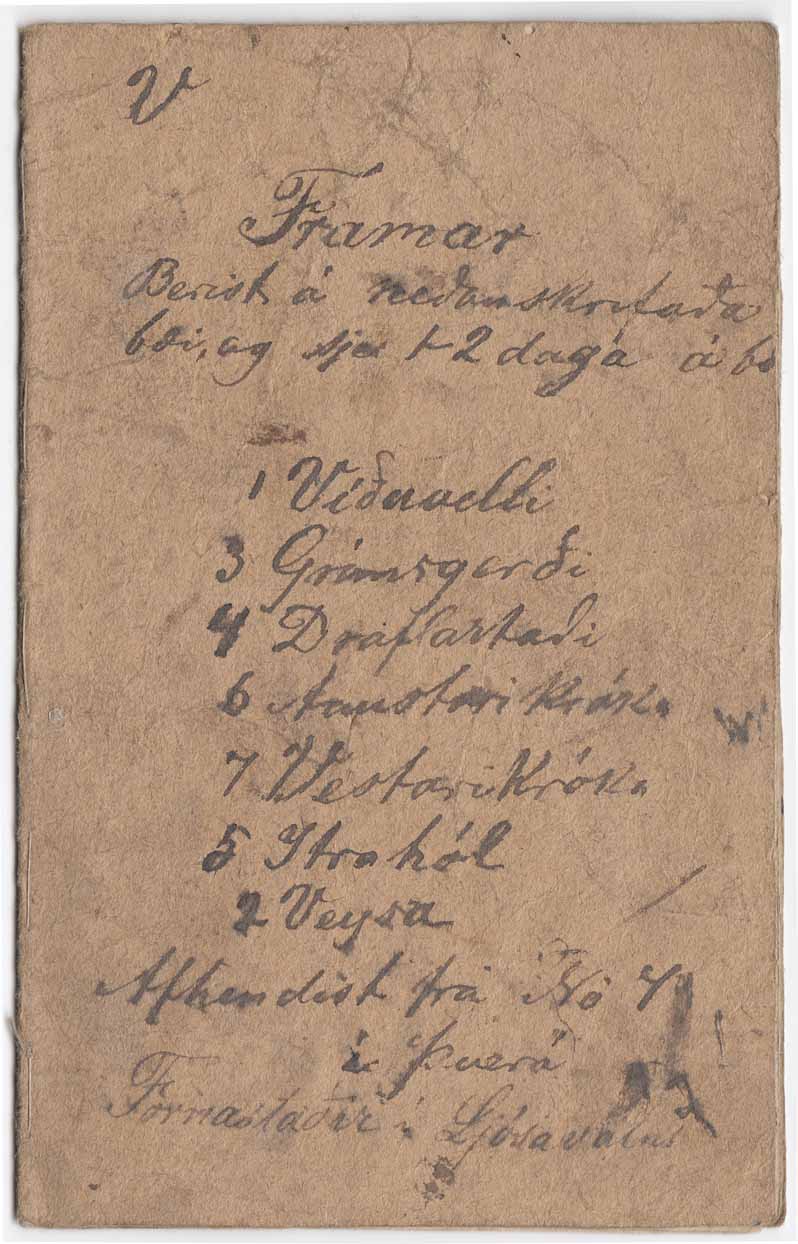 V
Framar
Berist á neðanskrifaða
bæi, og sje 2 daga á bæ
1 Víðivelli
3 Grímsgerði
4 Draflastaði
6 Austari Króka
7 Vestari Króka
5 Ytrahól
2 Veysa
Afhendist frá No 7
í Þverá
Fornastaðir í Ljósavatns